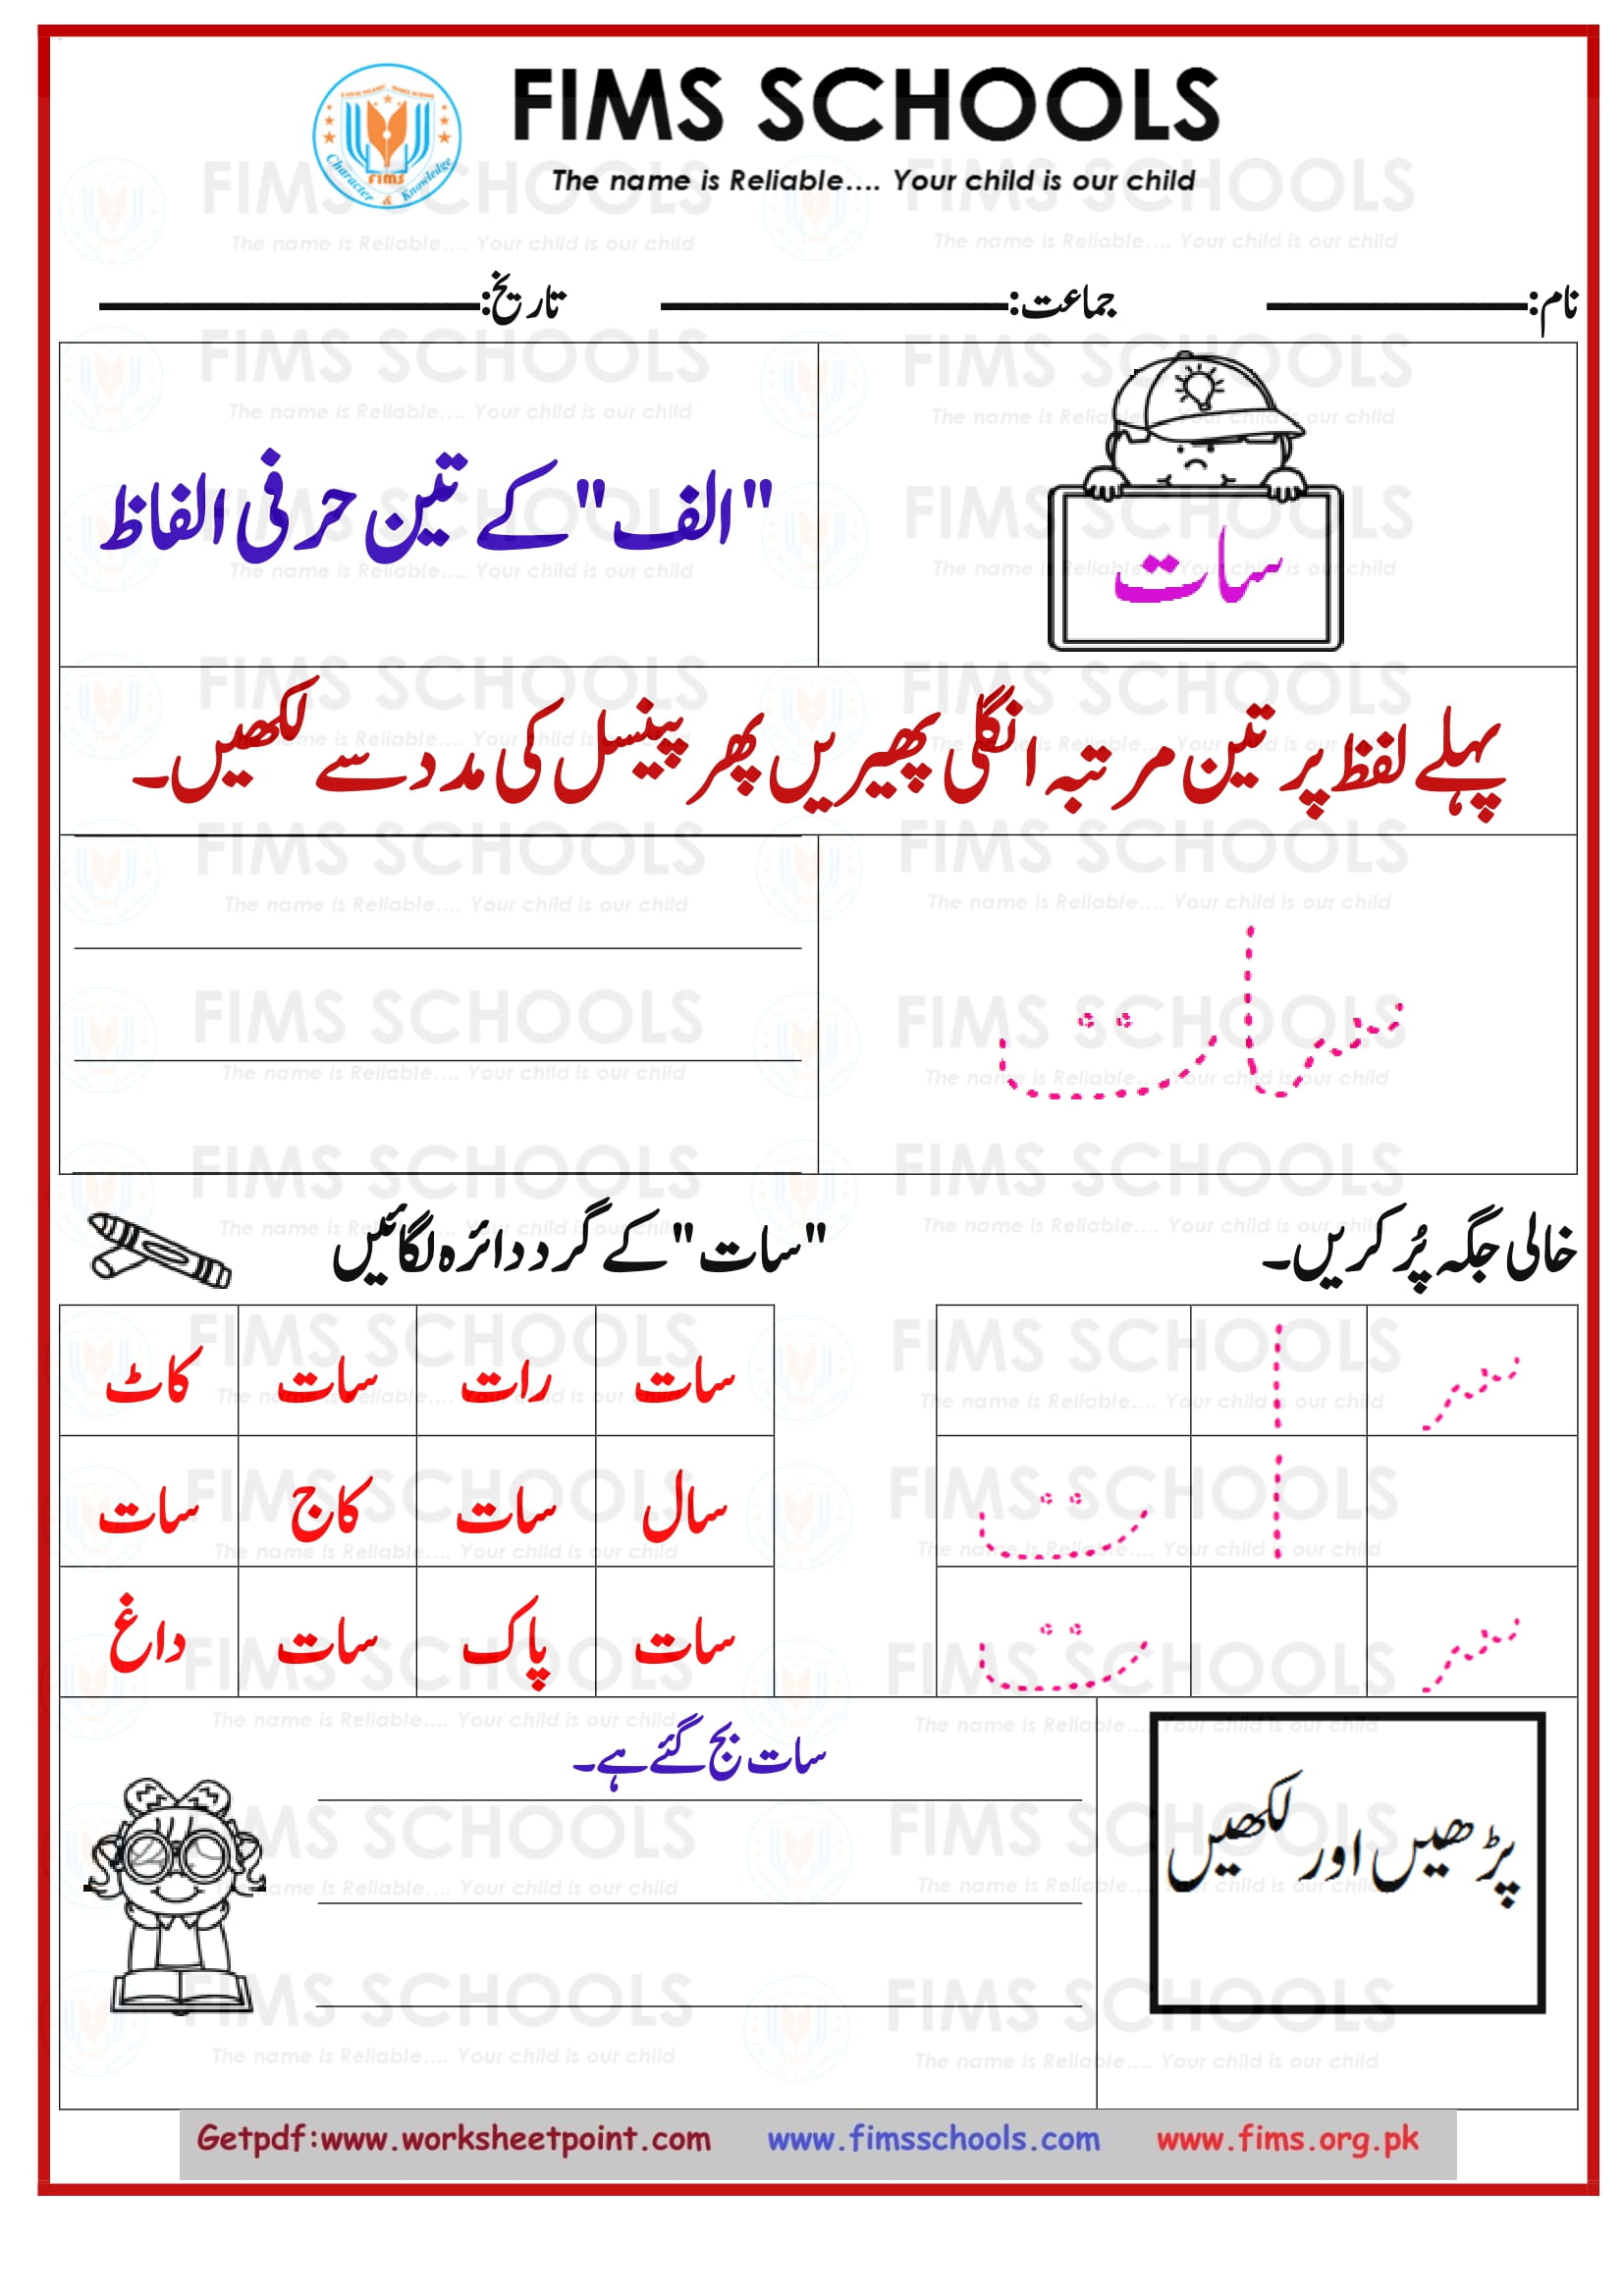 FIMS SCHOOLS
The name is Reliable.... Your child is our child
FIMS
Character & Knowledge
نام: جماعت: تاریخ:
سات
"الف" کے تین حرفی الفاظ
پہلے لفظ پر تین مرتبہ انگلی پھیریں پھر پینسل کی مدد سے لکھیں۔
سات
خالی جگہ پُر کریں۔ "سات" کے گرد دائرہ لگائیں
سـ ا
ا ت
سـ ت
سات رات سات کاٹ
سال سات کاج سات
سات پاک سات داغ
پڑھیں اور لکھیں
سات بج گئے ہے۔
Getpdf:www.worksheetpoint.com www.fimsschools.com www.fims.org.pk